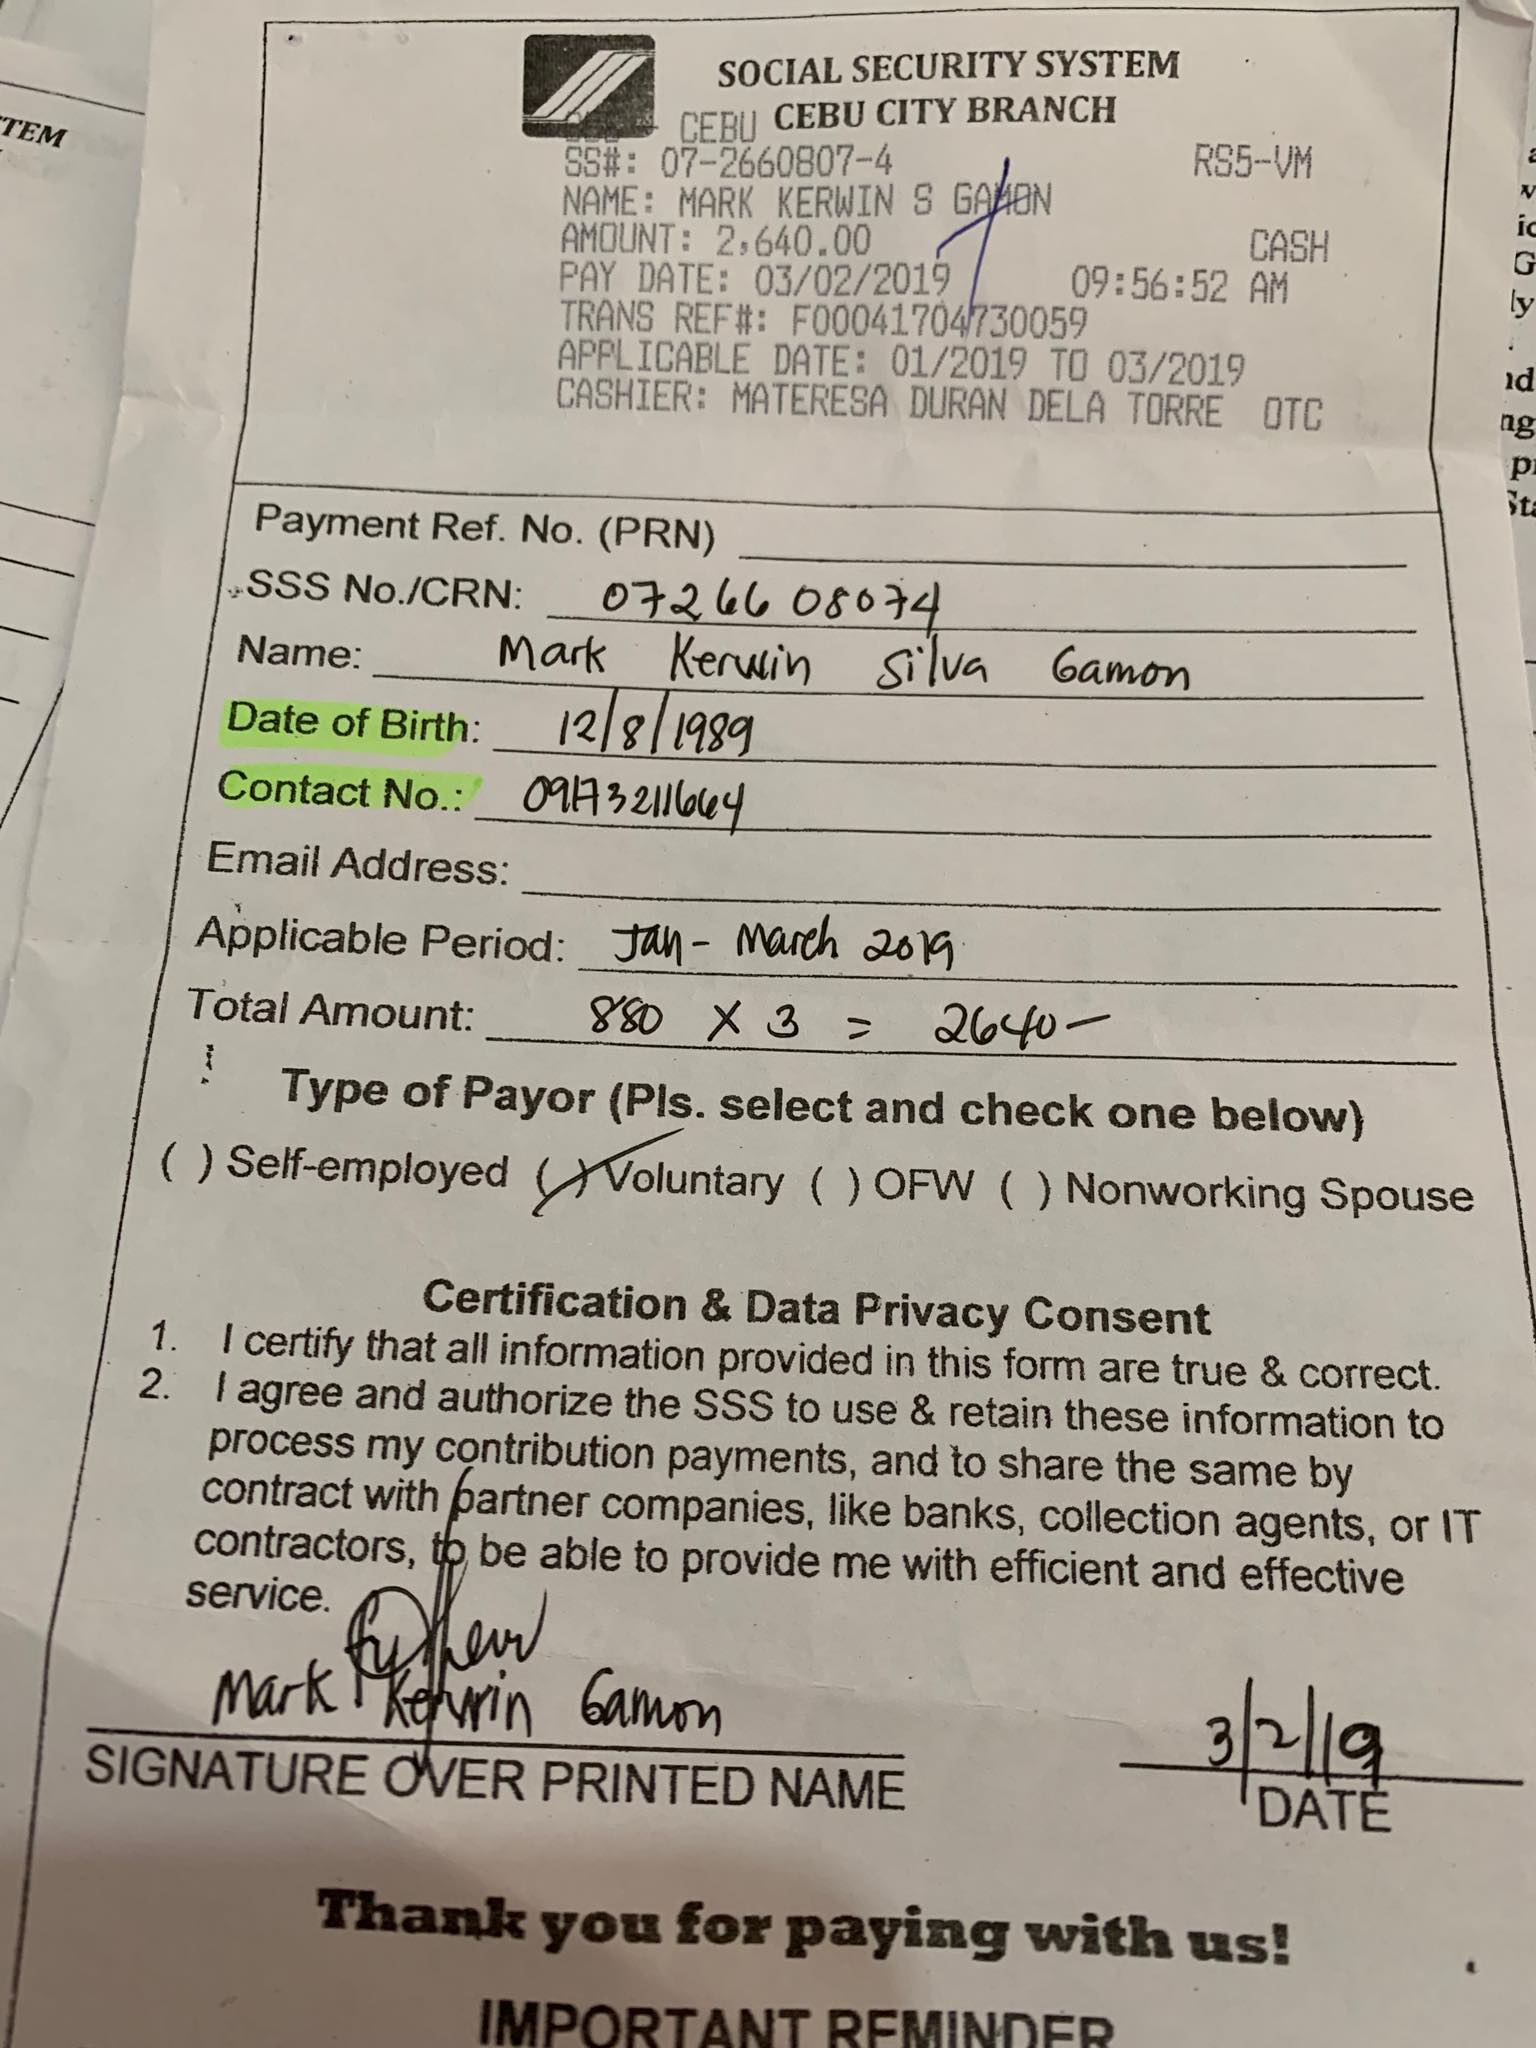 TEM
SOCIAL SECURITY SYSTEM
CEBU CITY BRANCH
CEBU
SS#: 07-2660807-4 RS5-VM
NAME: MARK KERWIN S GAMON
AMOUNT: 2,640.00 CASH
PAY DATE: 03/02/2019 09:56:52 AM
TRANS REF#: F00041704730059
APPLICABLE DATE: 01/2019 TO 03/2019
CASHIER: MATERESA DURAN DELA TORRE OTC
Payment Ref. No. (PRN)
SSS No./CRN: 0726608074
Name: Mark Kerwin Silva Gamon
Date of Birth: 12/8/1989
Contact No.: 09173211664
Email Address:
Applicable Period: Jan - March 2019
Total Amount: 880 X 3 = 2640 -
Type of Payor (Pls. select and check one below)
( ) Self-employed (/) Voluntary ( ) OFW ( ) Nonworking Spouse
Certification & Data Privacy Consent
1. I certify that all information provided in this form are true & correct.
2. I agree and authorize the SSS to use & retain these information to
process my contribution payments, and to share the same by
contract with partner companies, like banks, collection agents, or IT
contractors, to be able to provide me with efficient and effective
service.
Mark Kerwin Gamon 3/2/19
SIGNATURE OVER PRINTED NAME DATE
Thank you for paying with us!
IMPORTANT REMINDER